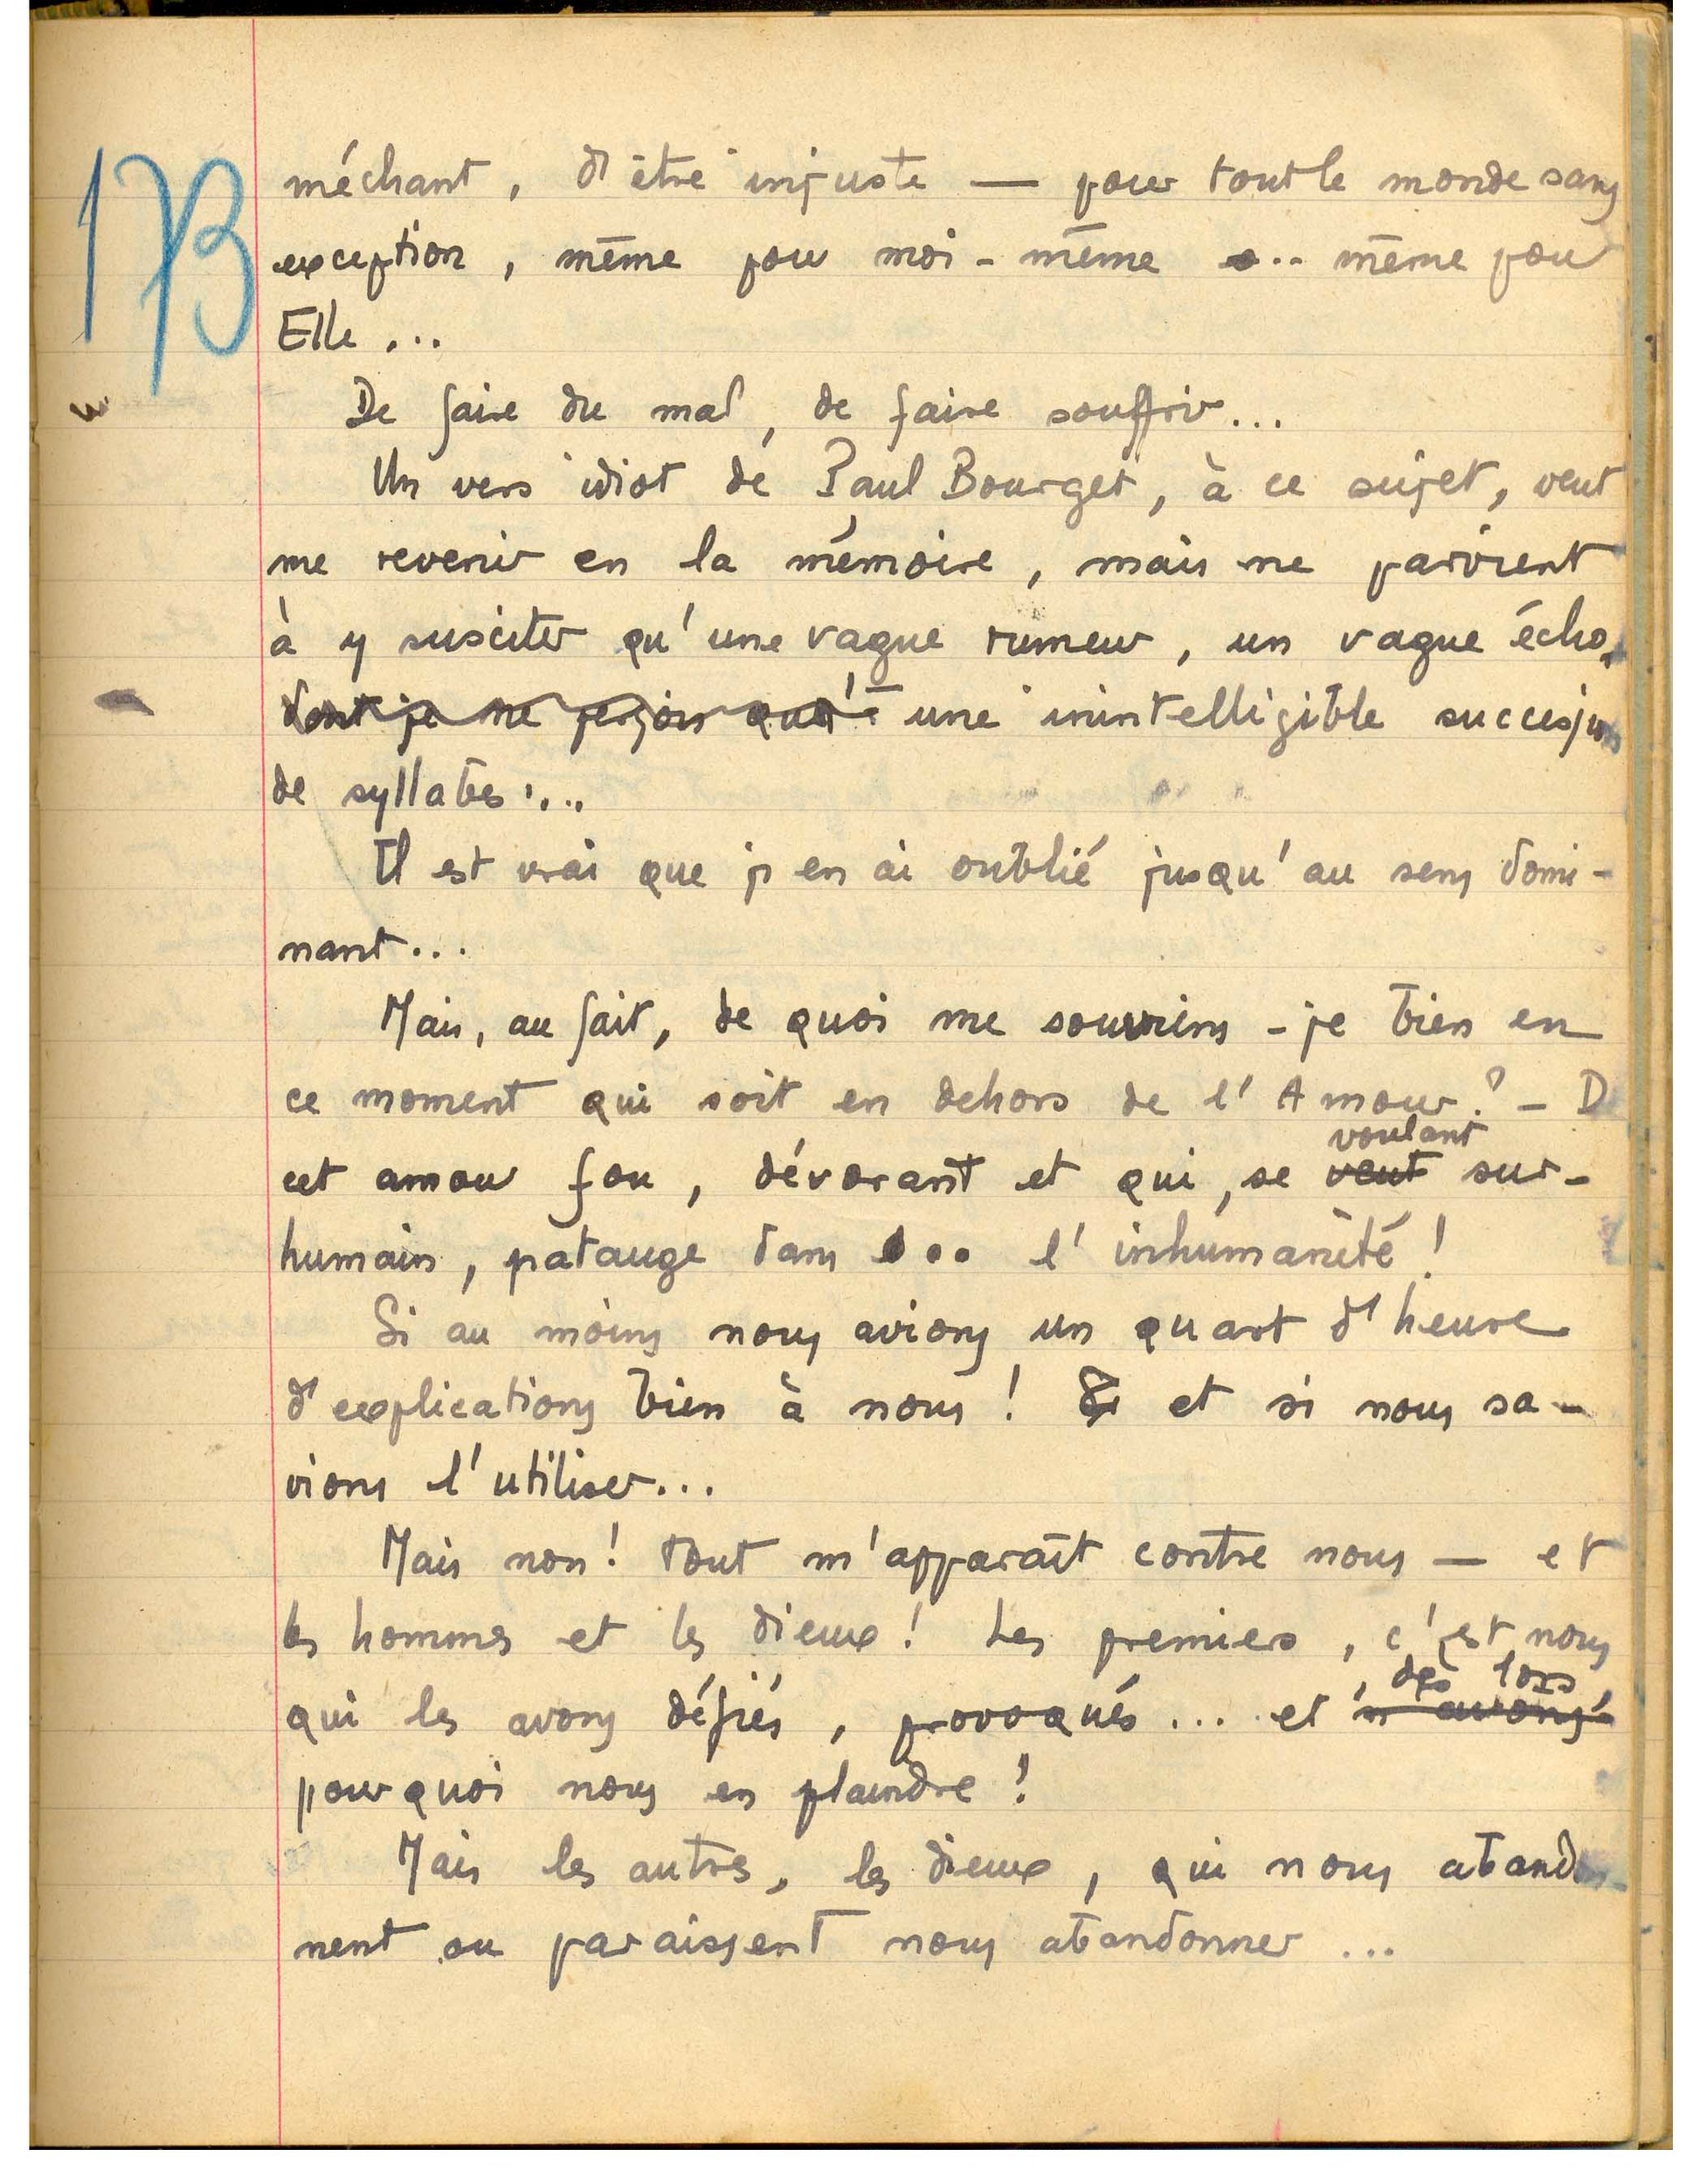 173
méchant, d'être injuste — pour tout le monde sans
exception, même pour moi-même ... même pour
Elle ...
De faire du mal, de faire souffrir...
Un vers idiot de Paul Bourget, à ce sujet, veut
me revenir en la mémoire, mais ne parvient
à y susciter qu'une vague rumeur, un vague écho,
dont je ne perçois qu'une inintelligible succession
de syllabes...
Il est vrai que j'en ai oublié jusqu'au sens domi-
nant...
Mais, au fait, de quoi me souviens-je bien en
ce moment qui soit en dehors de l'Amour? — De
voulant
cet amour fou, dévorant et qui, se veut sur-
humain, patauge dans ... l'inhumanité!
Si au moins nous avions un quart d'heure
d'explications bien à nous! et si nous sa-
vions l'utiliser...
Mais non! tout m'apparaît contre nous — et
les hommes et les dieux! Les premiers, c'est nous
, dès lors,
qui les avons défiés, provoqués... et n'avons
pourquoi nous en plaindre!
Mais les autres, les dieux, qui nous abandon-
nent ou paraissent nous abandonner...